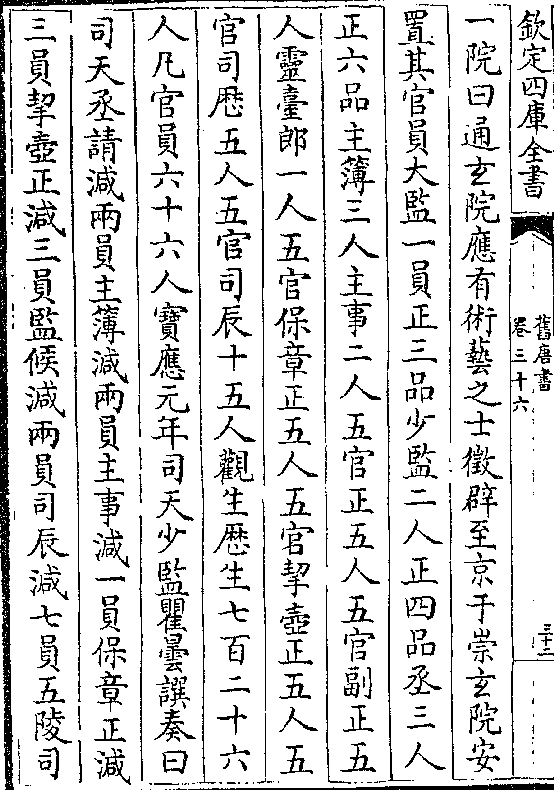 欽定四庫全書
舊唐書
卷三十六
三十二
一院曰通玄院應有術藝之士徵辟至京于崇玄院安
置其官員大監一員正三品少監二人正四品丞三人
正六品主簿三人主事二人五官正五人五官副正五
人靈臺郎一人五官保章正五人五官挈壺正五人五
官司歴五人五官司辰十五人觀生歴生七百二十六
人凡官員六十六人寶應元年司天少監瞿曇譔奏曰
司天丞請減兩員主簿減兩員主事減一員保章正減
三員挈壺正減三員監候減兩員司辰減七員五陵司